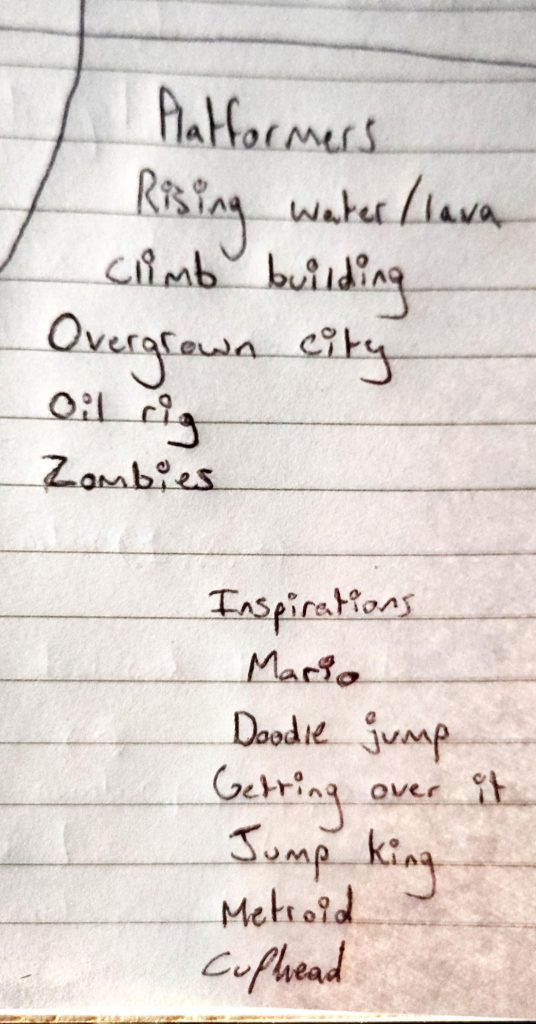 Platformers
Rising water/lava
Climb building
Overgrown city
Oil rig
Zombies
Inspirations
Mario
Doodle jump
Getting over it
Jump king
Metroid
Cuphead